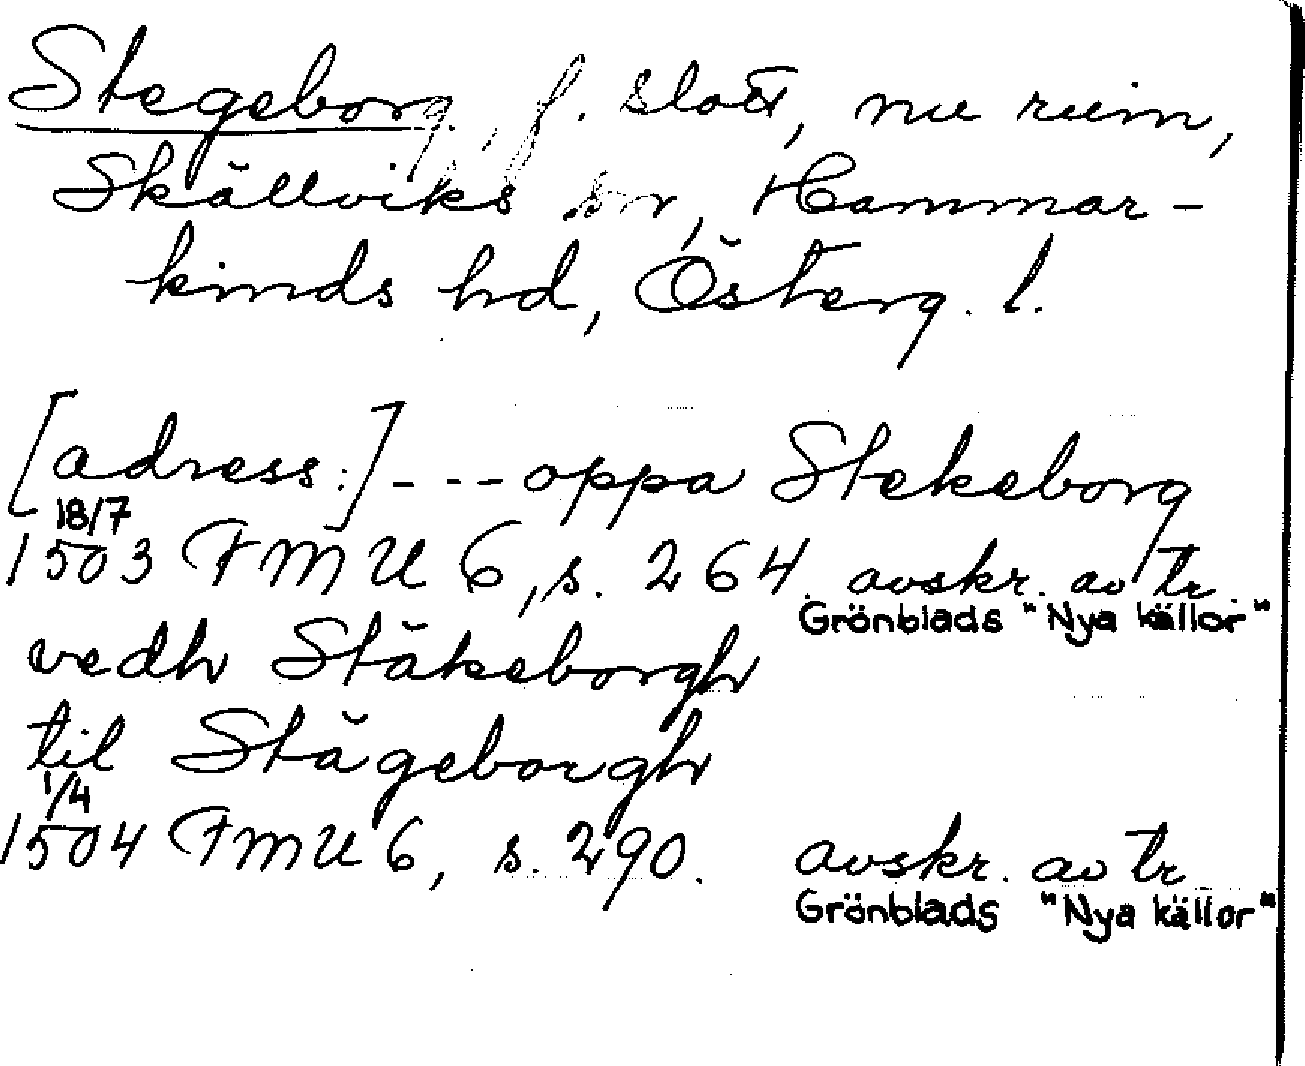 Stegeborg, f. slott, nu ruin,
Skällviks sn, Hammar-
kinds hd, Österg. l.
[adress:] --- oppa Stekeborg
18/7
1503 FMU 6, s. 264. avskr. av tr.
Grönblads "Nya källor"
vedh Stäkeborgh
til Stägeborgh
1/4
1504 FMU 6, s. 290. avskr. av tr
Grönblads "Nya källor"